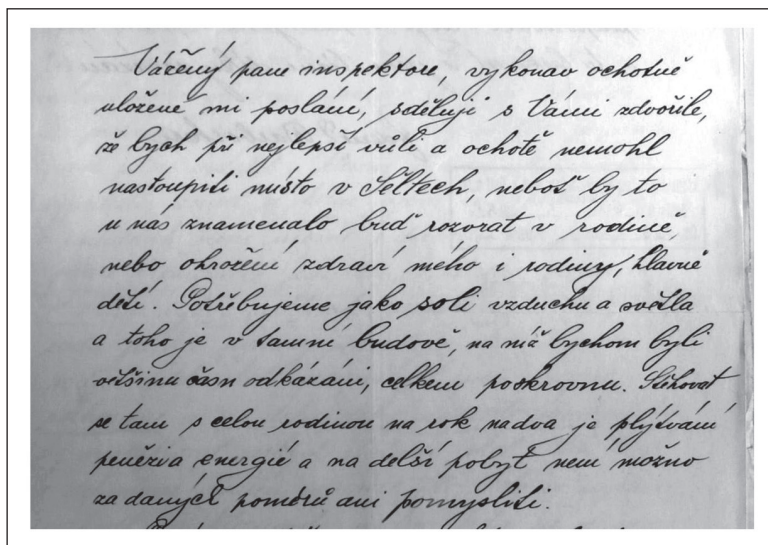 Vážený pane inspektore, vykonav ochotně
uložené mi poslání, sděluji s Vámi zdvořile,
že bych při nejlepší vůli a ochotě nemohl
nastoupiti místo v Séltech, neboť by to
u nás znamenalo buď rozvrat v rodině,
nebo ohrožení zdraví mého i rodiny, hlavně
dětí. Potřebujeme jako soli vzduchu a světla
a toho je v tamní budově, na niž bychom byli
většinu času odkázáni, celkem poskrovnu. Stěhovat
se tam s celou rodinou na rok na dva je plýtvání
peněz i a energií a na delší pobyt není možno
za daných poměrů ani pomysliti.